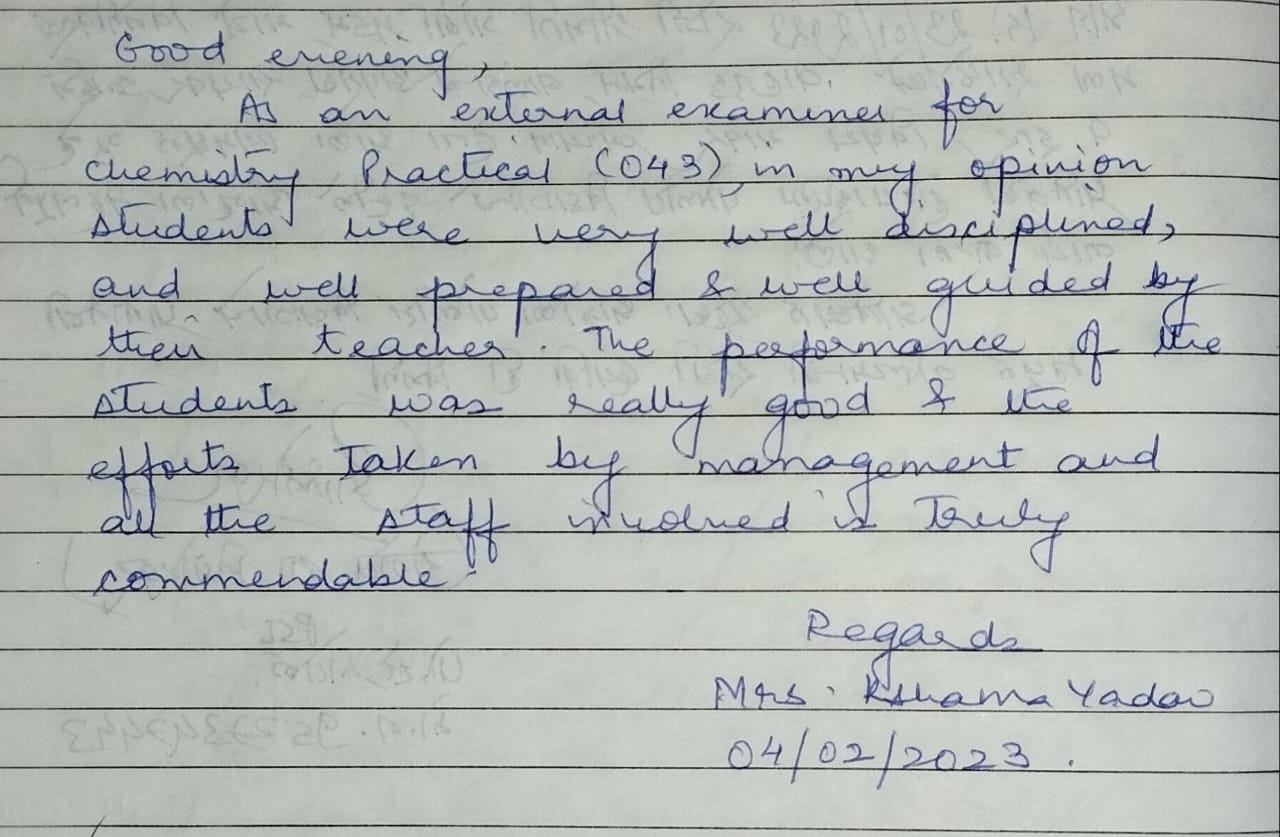 Good evening,
As an external examiner for
chemistry Practical (043) in my opinion
students were very well disciplined,
and well prepared & well guided by
their teacher. The performance of the
students was really good & the
efforts Taken by management and
all the staff involved is Truly
commendable.
Regards
Mrs. Kshama Yadav
04/02/2023.